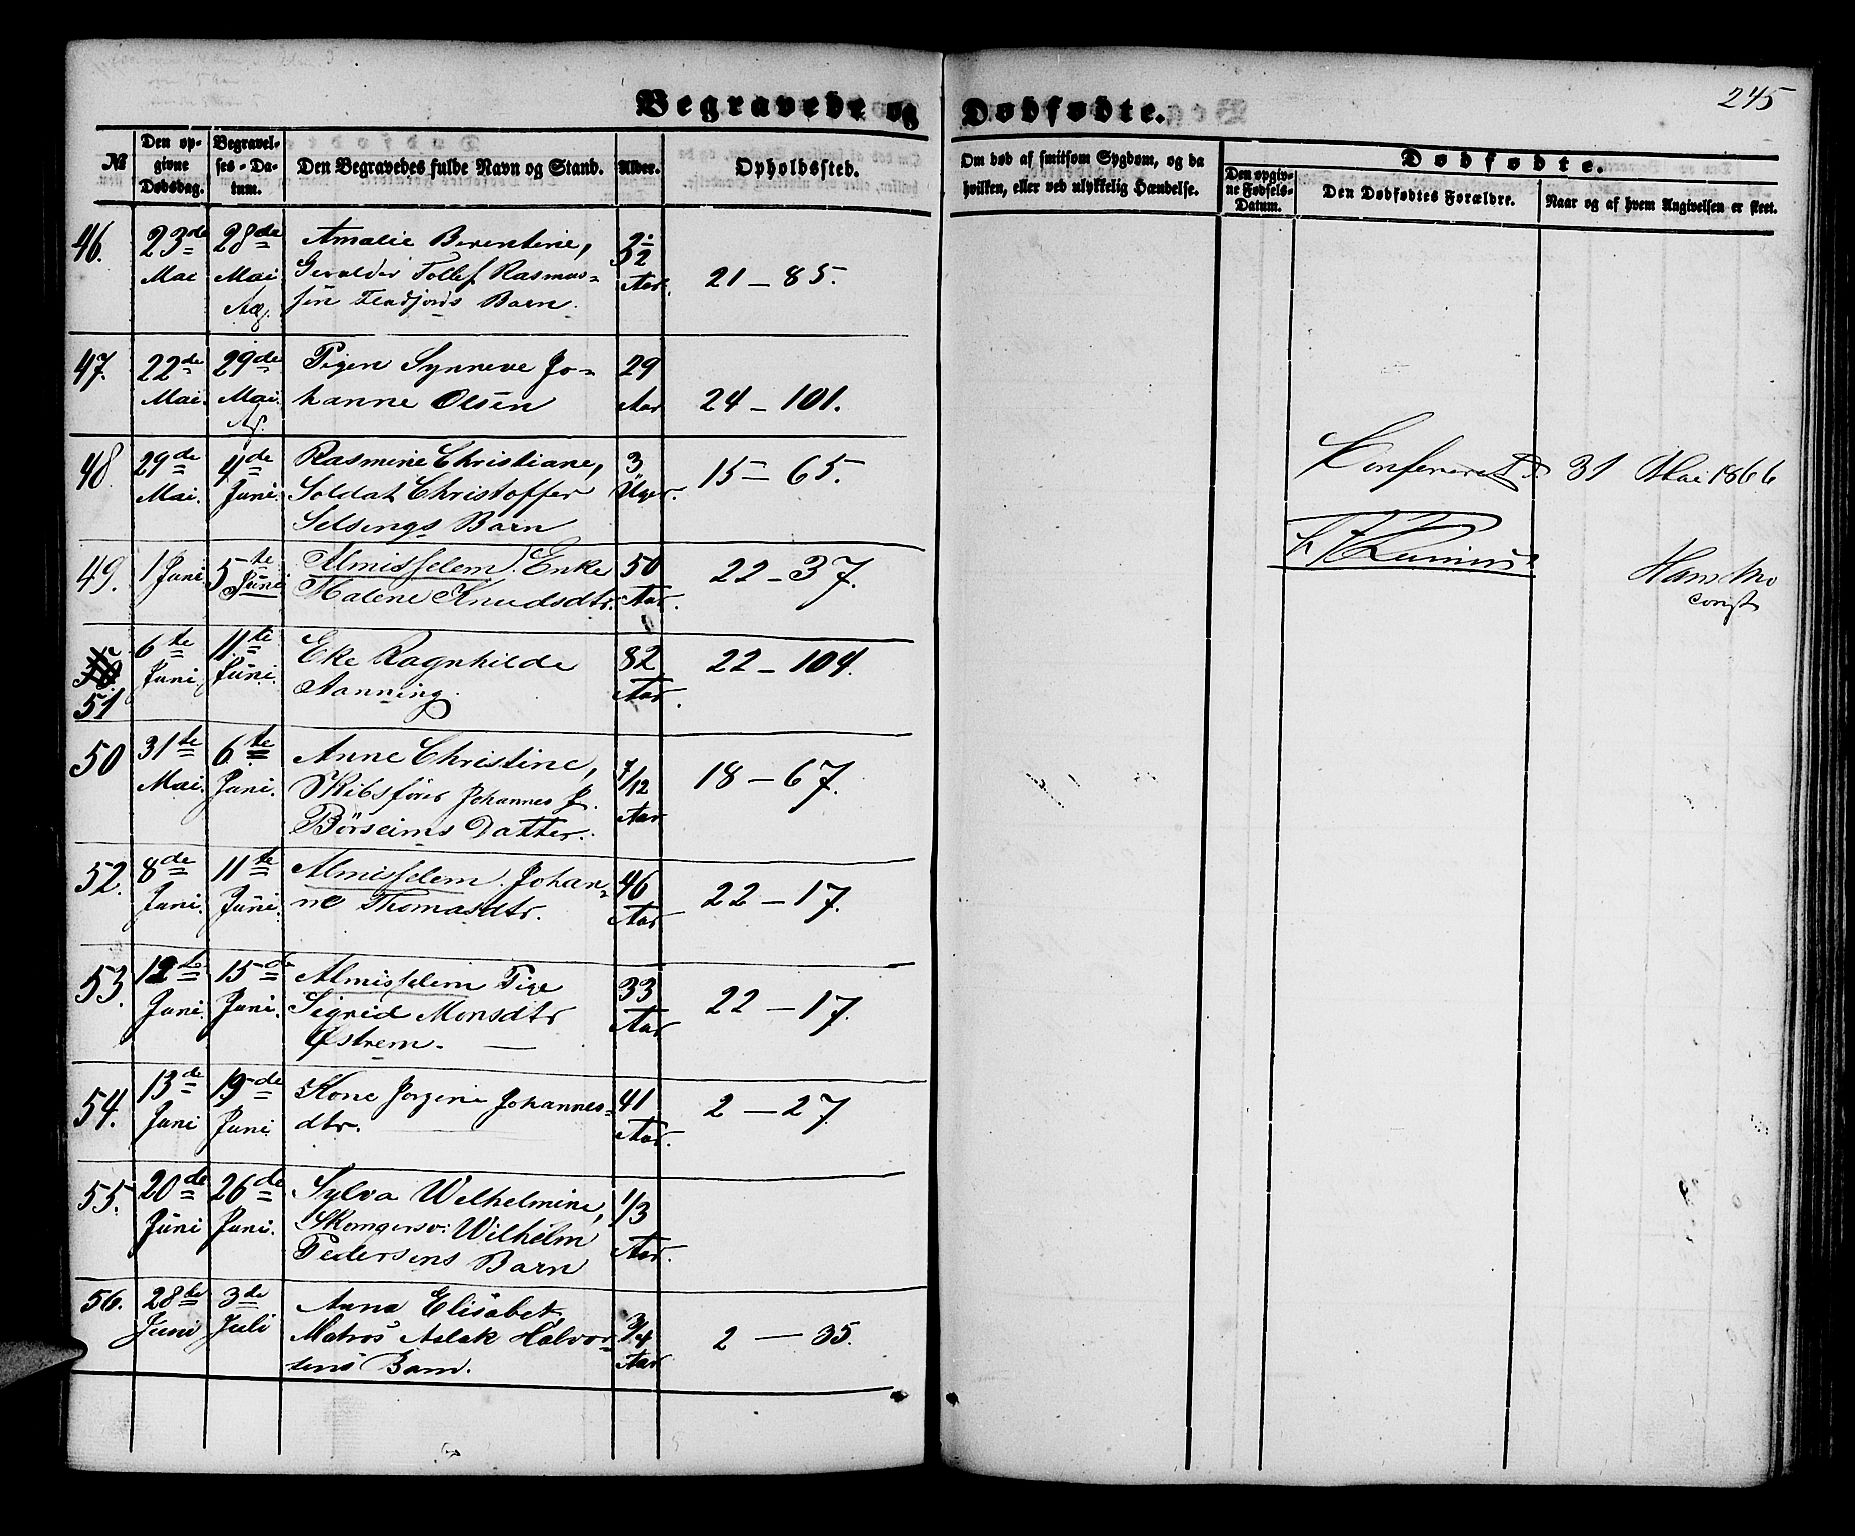 245
Begravede og Dødfødte.
№
Den op-
givne
Dødsdag.
Begravel-
ses-Da-
tum.
Den Begravedes fulde Navn og Stand.
Alder.
Opholdssted.
Om død af smitsom Sygdom, og da
hvilken, eller ved ulykkelig Hændelse.
Dødfødte.
Den opgiv-
ne Fødsels-
Datum.
Den Dødfødtes Forældre.
Naar og af hvem Angivelsen er skeet.
46. 23de 28de Amalie Berentine,
Mai Mai Tollef Rasmus- Aar. 21 - 85.
Barn.
47. 22de 29de Pigen Synneve Jo- 29
Mai. Mai. hanne Olsen Aar 24 - 101.
48 29de 4de Rasmine Christiane, 3
Mai. Juni. Soldat Christoffer Uger. 15 - 65.
Selsings Barn
49. 1 Juni 5te Almisselem. Enke 50 22 - 37.
Juni Malene Knudsdtr. Aar.
6te 11te Eke Ragnhilde 82 22 - 104.
Juni Juni. Aanning. Aar.
51
50 31te 6te Anne Christine, 7/12 18 - 67.
Mai. Juni. Skibsfører Johannes J.
Børseims Datter. Aar
52. 8de 11te Almisselem. Johan- 46
Juni. Juni. ne Thomasdtr. Aar 22 - 17.
53. 12te 15de Almisselem Pige 33
Juni. Juni. Sigrid Monsdtr Aar 22 - 17.
Østrem.
54. 13de 19de Kone Jørgine Johannes- 41 2 - 27.
Juni Juni. dtr. Aar.
55. 20de 26de Sylva Wilhelmine, 1/3
Juni Juni. Wilhelm
Pedersens Barn Aar.
56. 28de 3de Anna Elisabet,
Juni Juli Matros Aslak Halvor- 3/4 2 - 35.
sens Barn. Aar
Konfereret d. 31 Mai 1866
const